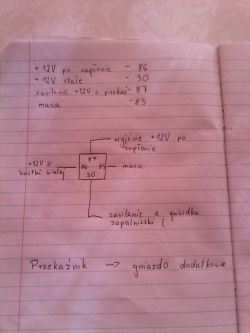 + 12V po zapłonie - 86
+ 12V stałe - 30
zasilanie +12V z przekaź - 87
masa - 85
wyjście +12V po
zapłonie
+12V z
kostki białej
87
86
85
masa
30
zasilanie z gniazdka
zapalniczki (
Przekaźnik → gniazdo dodatkowe